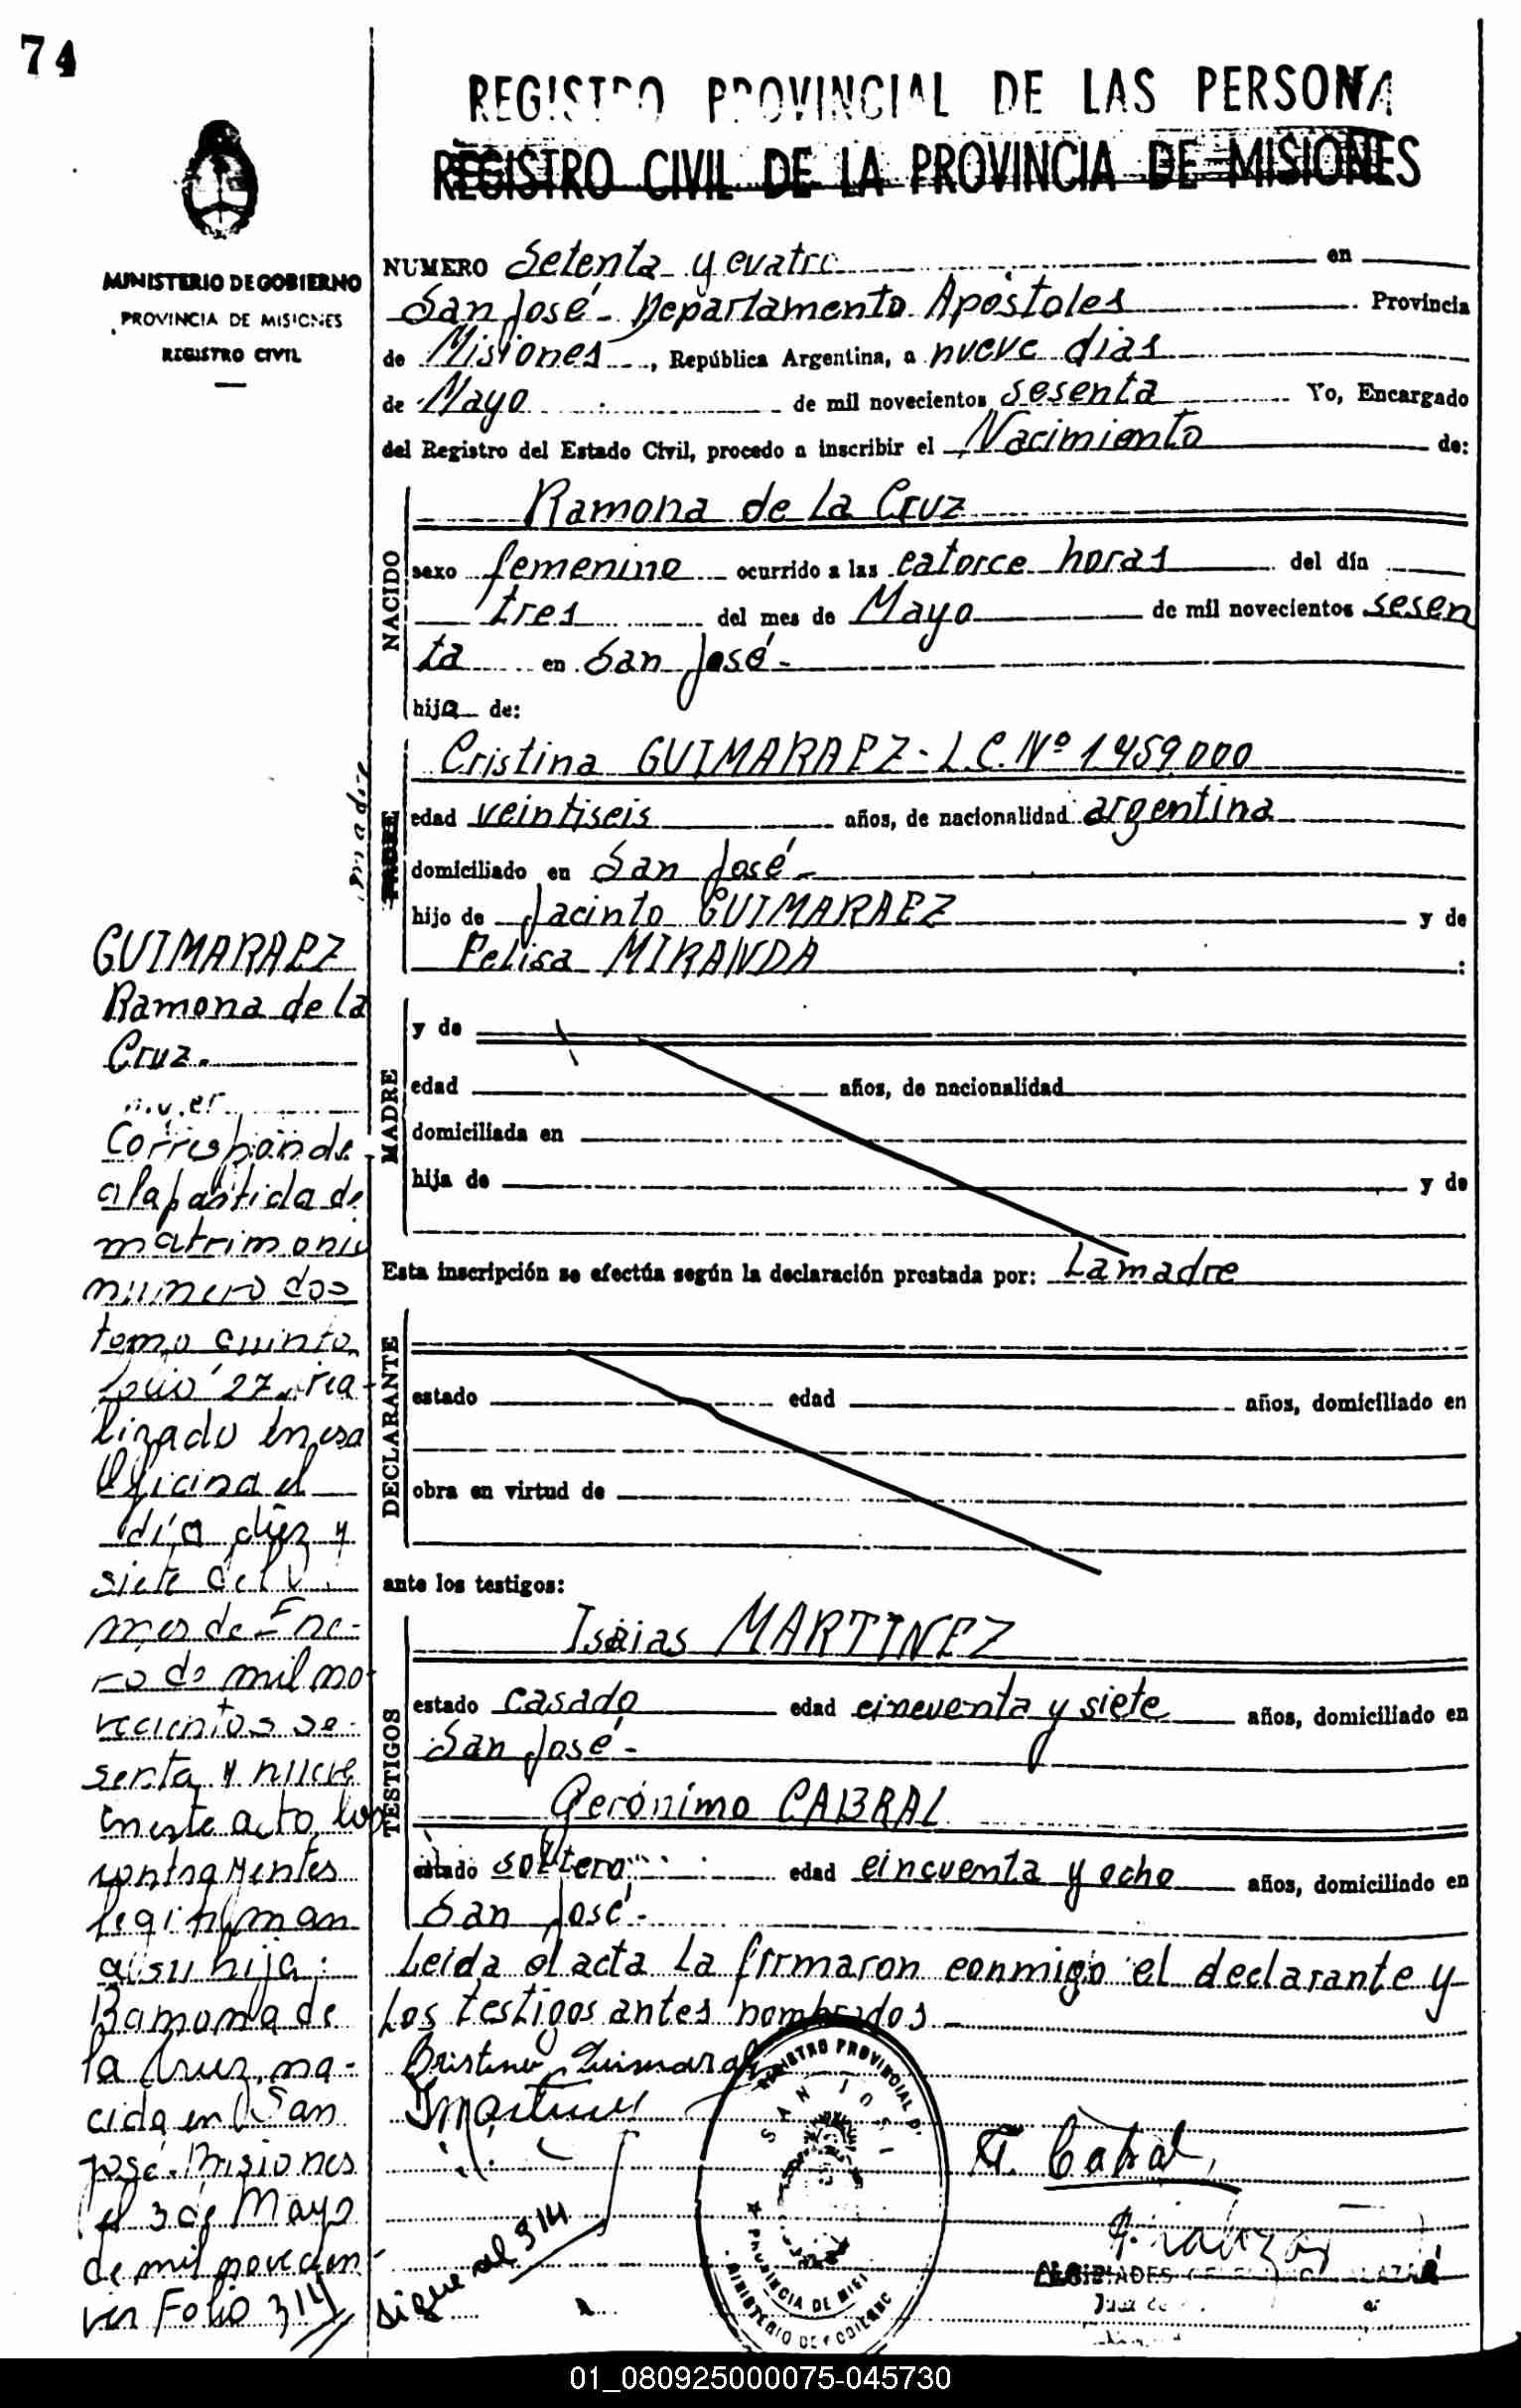 74
REGISTRO PROVINCIAL DE LAS PERSONA
REGISTRO CIVIL DE LA PROVINCIA DE MISIONES
MINISTERIO DE GOBIERNO
PROVINCIA DE MISIONES
REGISTRO CIVIL
NUMERO Setenta y cuatro en
San José - Departamento Apóstoles Provincia
de Misiones, República Argentina, a nueve dias
de Mayo de mil novecientos sesenta Yo, Encargado
del Registro del Estado Civil, procedo a inscribir el Nacimiento de:
NACIDO
Ramona de la Cruz
sexo femenino ocurrido a las catorce horas del día
tres del mes de Mayo de mil novecientos sesen
ta en San José-
hija de:
madre
Cristina GUIMARAEZ - L.C. Nº 1459000
edad veintiseis años, de nacionalidad argentina
domiciliado en San José-
hijo de Jacinto GUIMARAEZ y de
Felisa MIRANDA :
MADRE
y de
edad años, de nacionalidad
domiciliada en
hija de y de
Esta inscripción se efectúa según la declaración prestada por: La madre
DECLARANTE
estado edad años, domiciliado en
obra en virtud de
ante los testigos:
TESTIGOS
Isaias MARTINEZ
estado casado edad cincuenta y siete años, domiciliado en
San José-
Gerónimo CABRAL
estado soltero edad cincuenta y ocho años, domiciliado en
San José-
Leida el acta la firmaron conmigo el declarante y
los testigos antes nombrados-
Cristina Guimaraez
I Martinez
G. Cabral
Sigue al 314
REGISTRO PROVINCIAL D.
SAN JOSE
PROVINCIA DE MISI
MINISTERIO DE GOBIERNO
ALCIBIADES
Juez de
GUIMARAEZ
Ramona de la
Cruz.-
Corresponde
a la partida de
matrimonio
numero dos
tomo quinto
folio 27, rea-
lizado en esa
Oficina el
día diez y
siete del
mes de Ene-
ro de mil no-
vecientos se-
senta y nueve
en este acto los
contrayentes
legitiman
a su hija:
Ramona de
la Cruz, na-
cida en San
José. Misiones
el 3 de Mayo
de mil novecien-
ver Folio 314
01_080925000075-045730